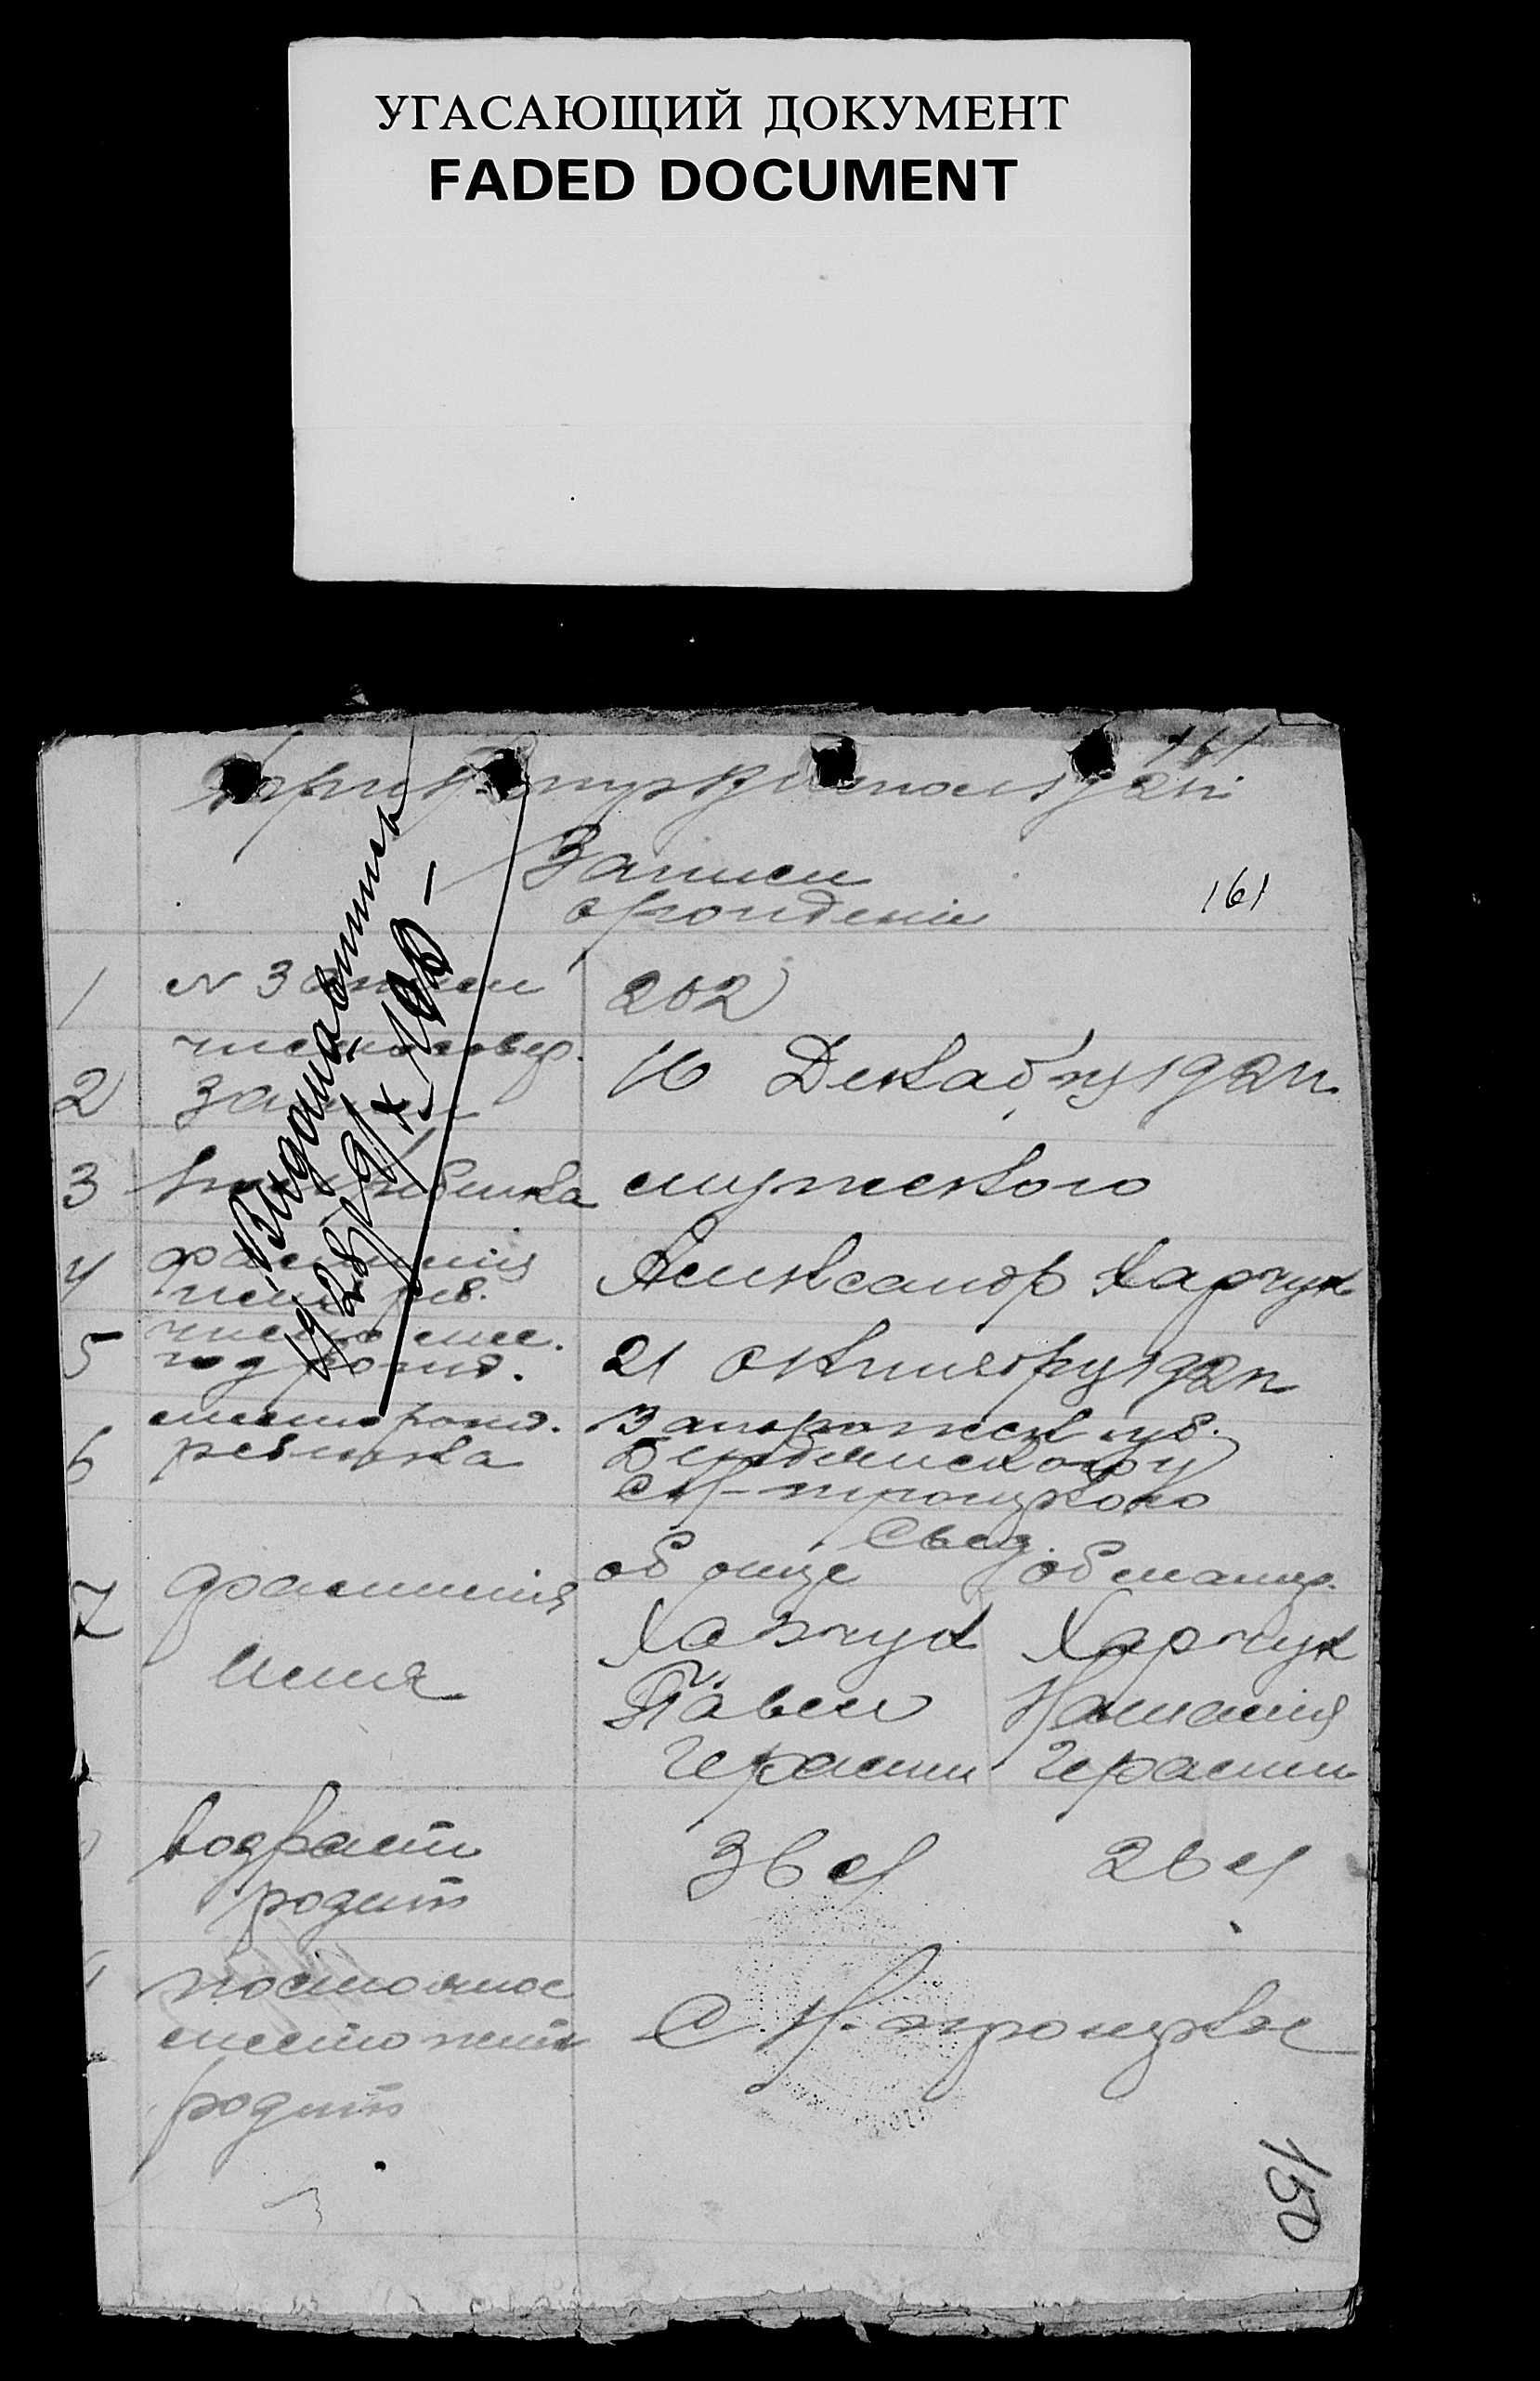 УГАСАЮЩИЙ ДОКУМЕНТ
FADED DOCUMENT
161
Записи
о рождении
161
1 № Записи 202
2 число совер. записи
16 Декабря 192 г.
3 ребенка мужского
4 фамилия имя реб.
Александр Харчук
5 число мес. год рожд.
21 октября 192 г
6 место рожд. ребенка
Запорожск губ.
Бердянского у
с Н-троицкого
Свед.
об отце об матер.
7 фамилия Харчук Харчук
Имя Павел Наталия
Герасим Герасим
возраст родит 36 л 26 л
постоянное место жит родит
С Н-троицкое
150